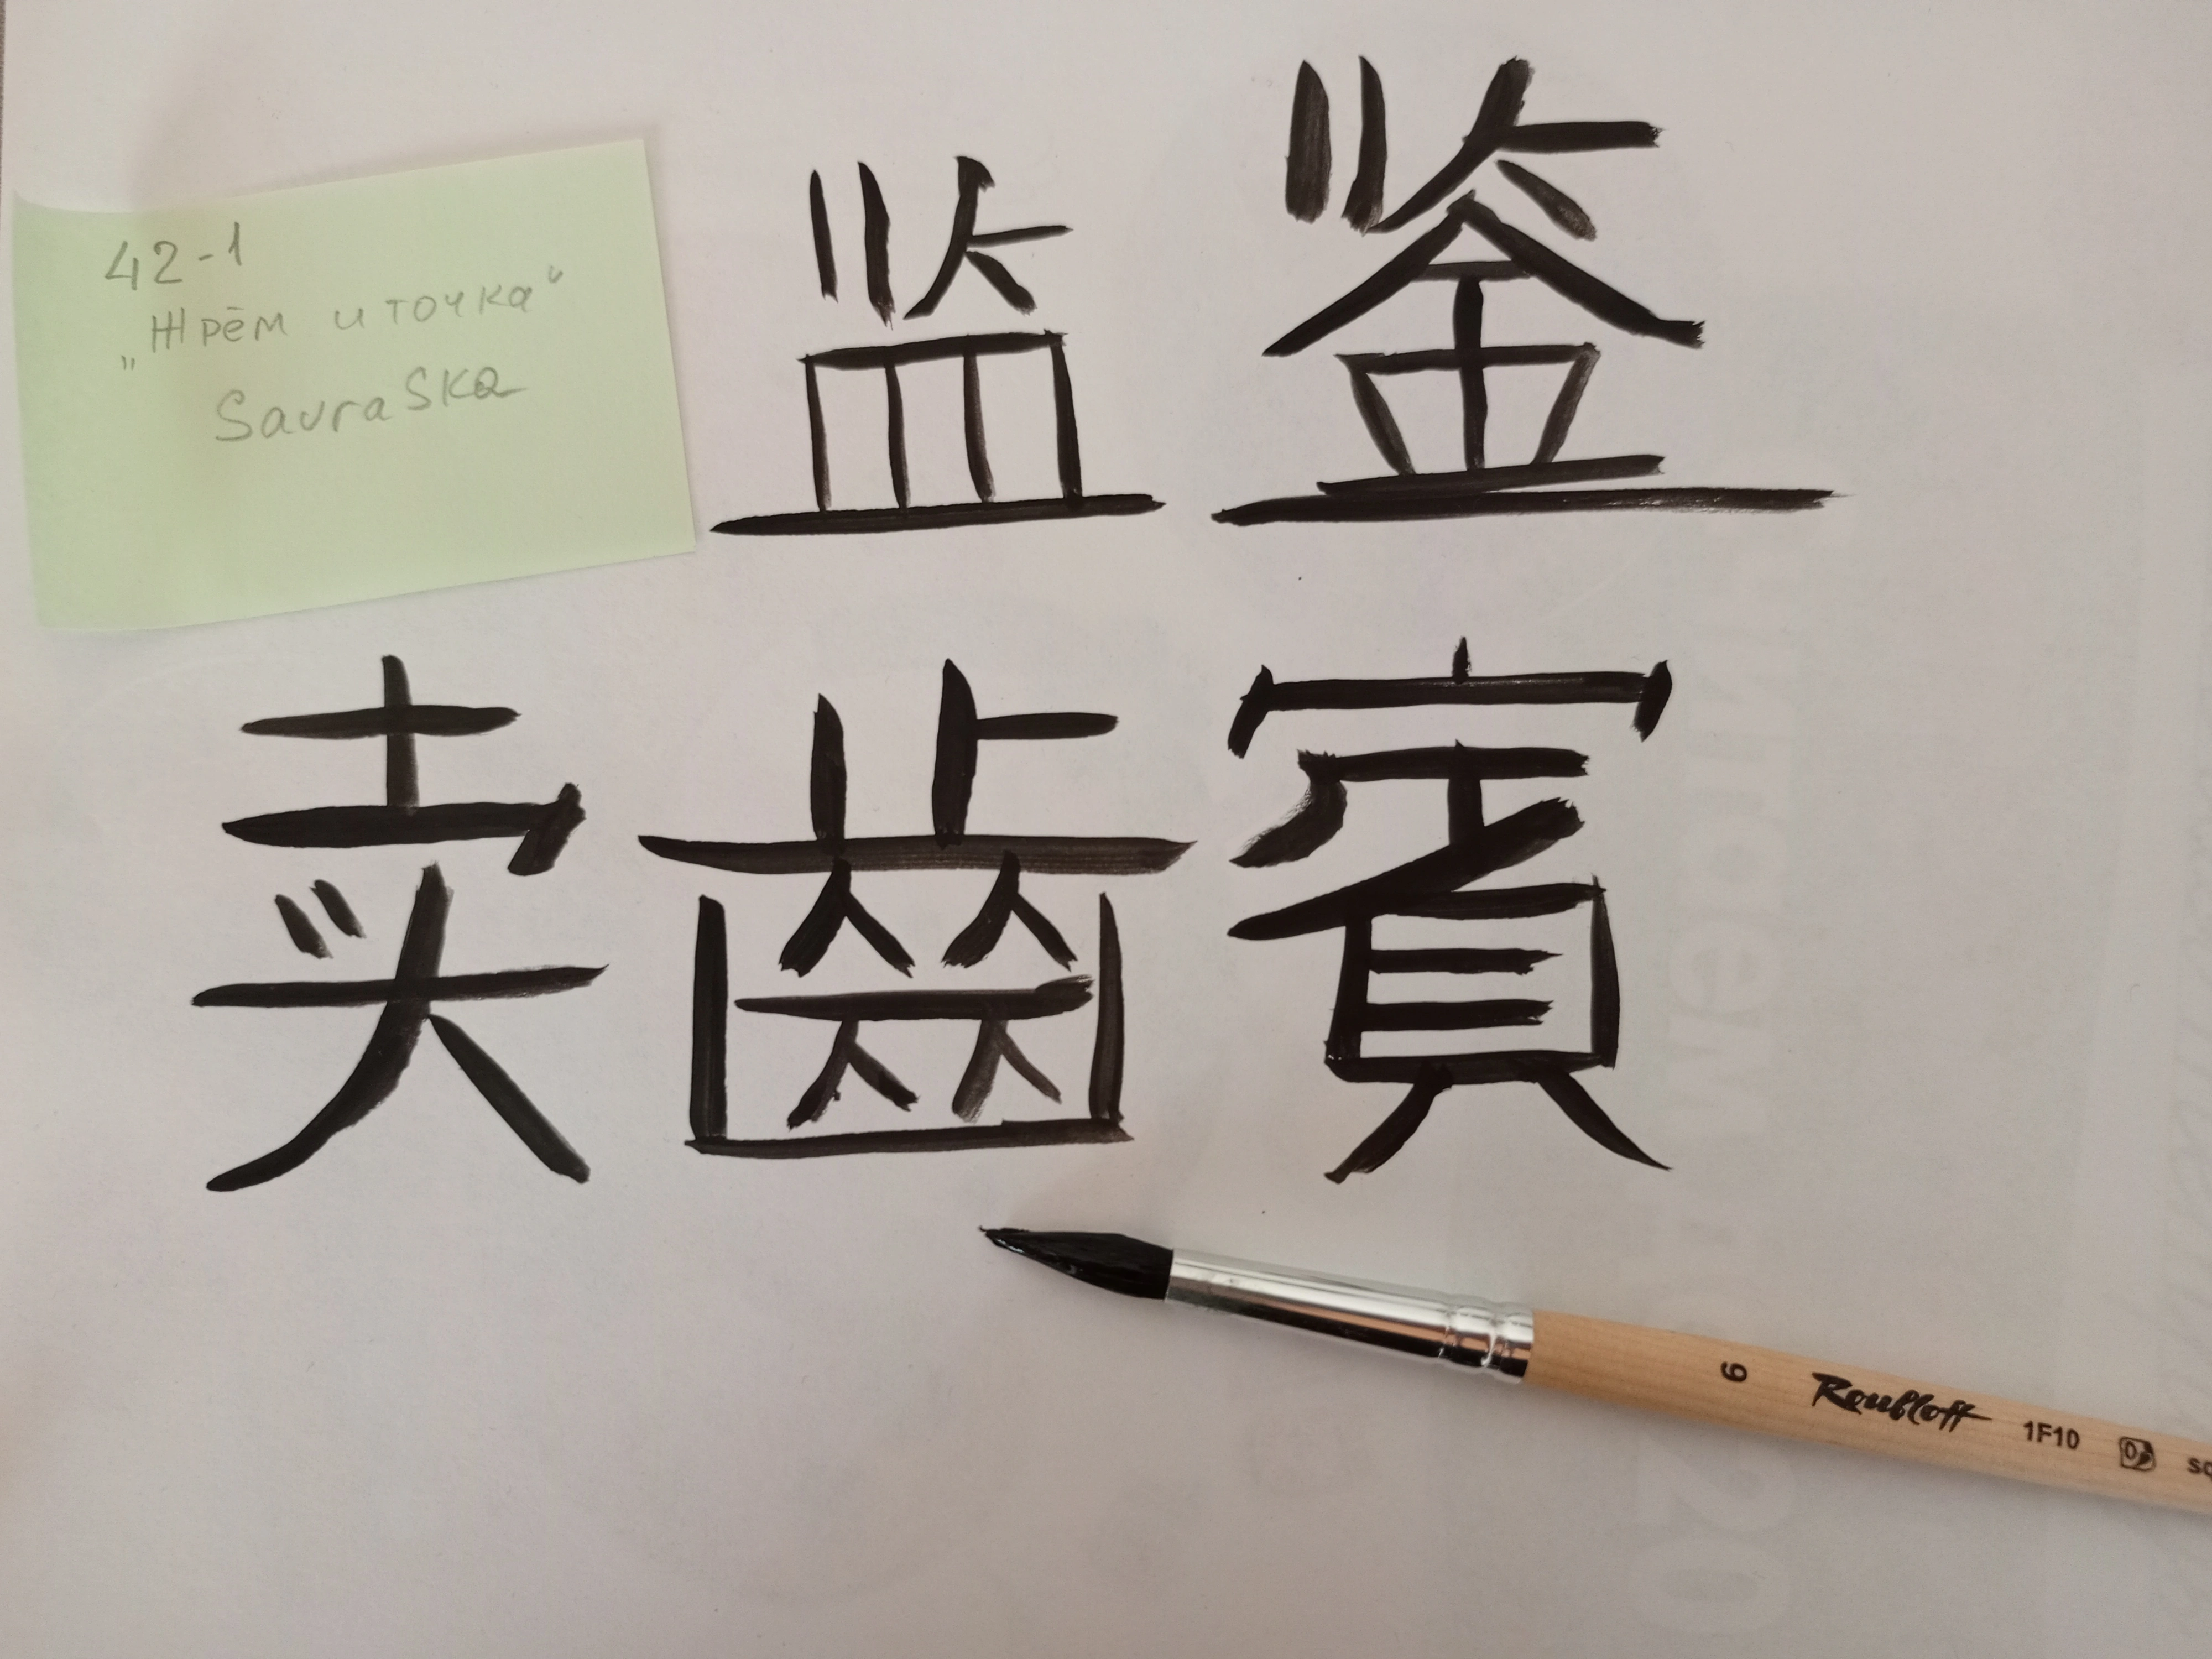 42-1
„Жрём и точка"
SavraSKa
监 鉴
卖 齒 賓
6 Roubloff 1F10